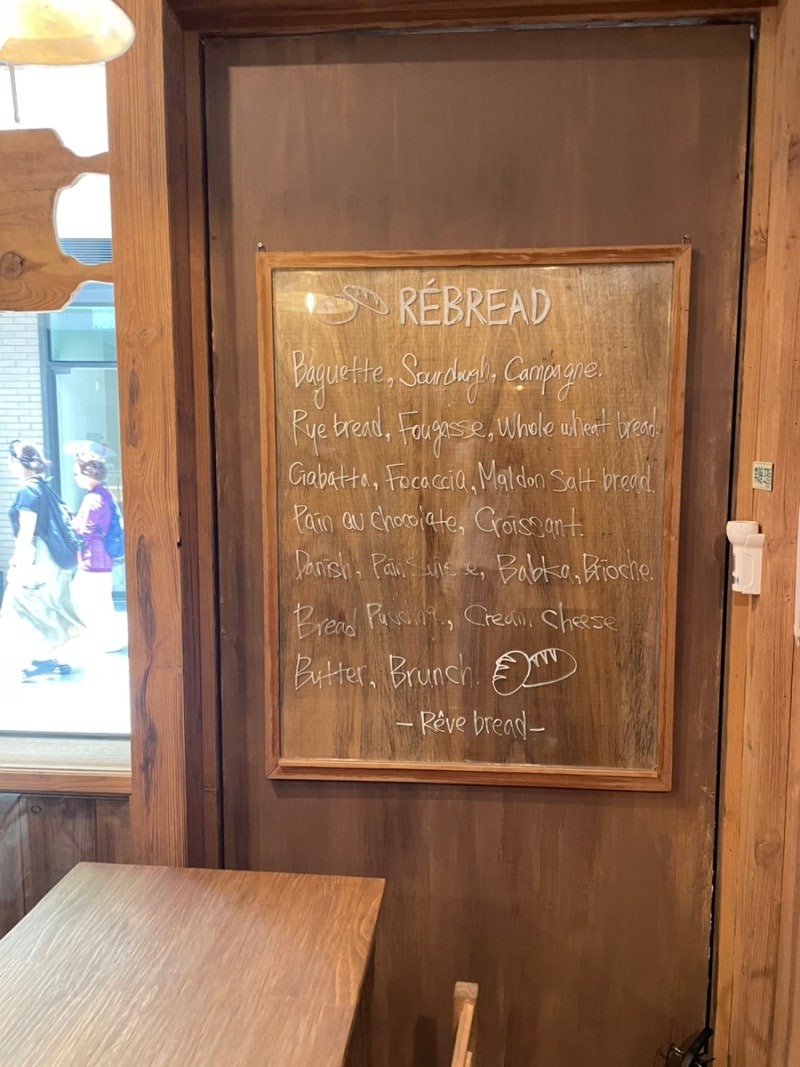 RÉBREAD
Baguette, Sourdough, Campagne.
Rye bread, Fougasse, Whole wheat bread.
Ciabatta, Focaccia, Maldon Salt bread.
Pain au chocolate, Croissant.
Danish, Pain Suisse, Babka, Brioche.
Bread Pudding, Cream cheese
Butter, Brunch.
– Rêve bread –